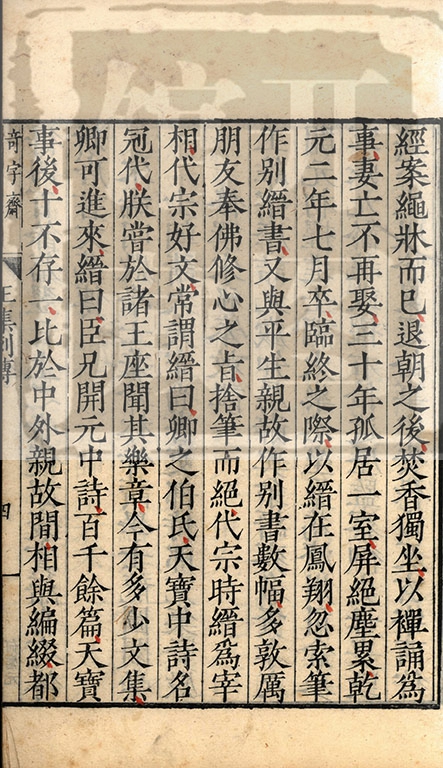 經案繩牀而已退朝之後焚香獨坐以禪誦爲
事妻亡不再娶三十年孤居一室屏絕塵累乾
元二年七月卒臨終之際以縉在鳳翔忽索筆
作別縉書又與平生親故作別書數幅多敦厲
朋友奉佛修心之旨捨筆而絕代宗時縉爲宰
相代宗好文常謂縉曰卿之伯氏天寶中詩名
冠代朕嘗於諸王座聞其樂章今有多少文集
卿可進來縉曰臣兄開元中詩百千餘篇天寶
事後十不存一比於中外親故間相與編綴都
奇字齋
王集列傳
四